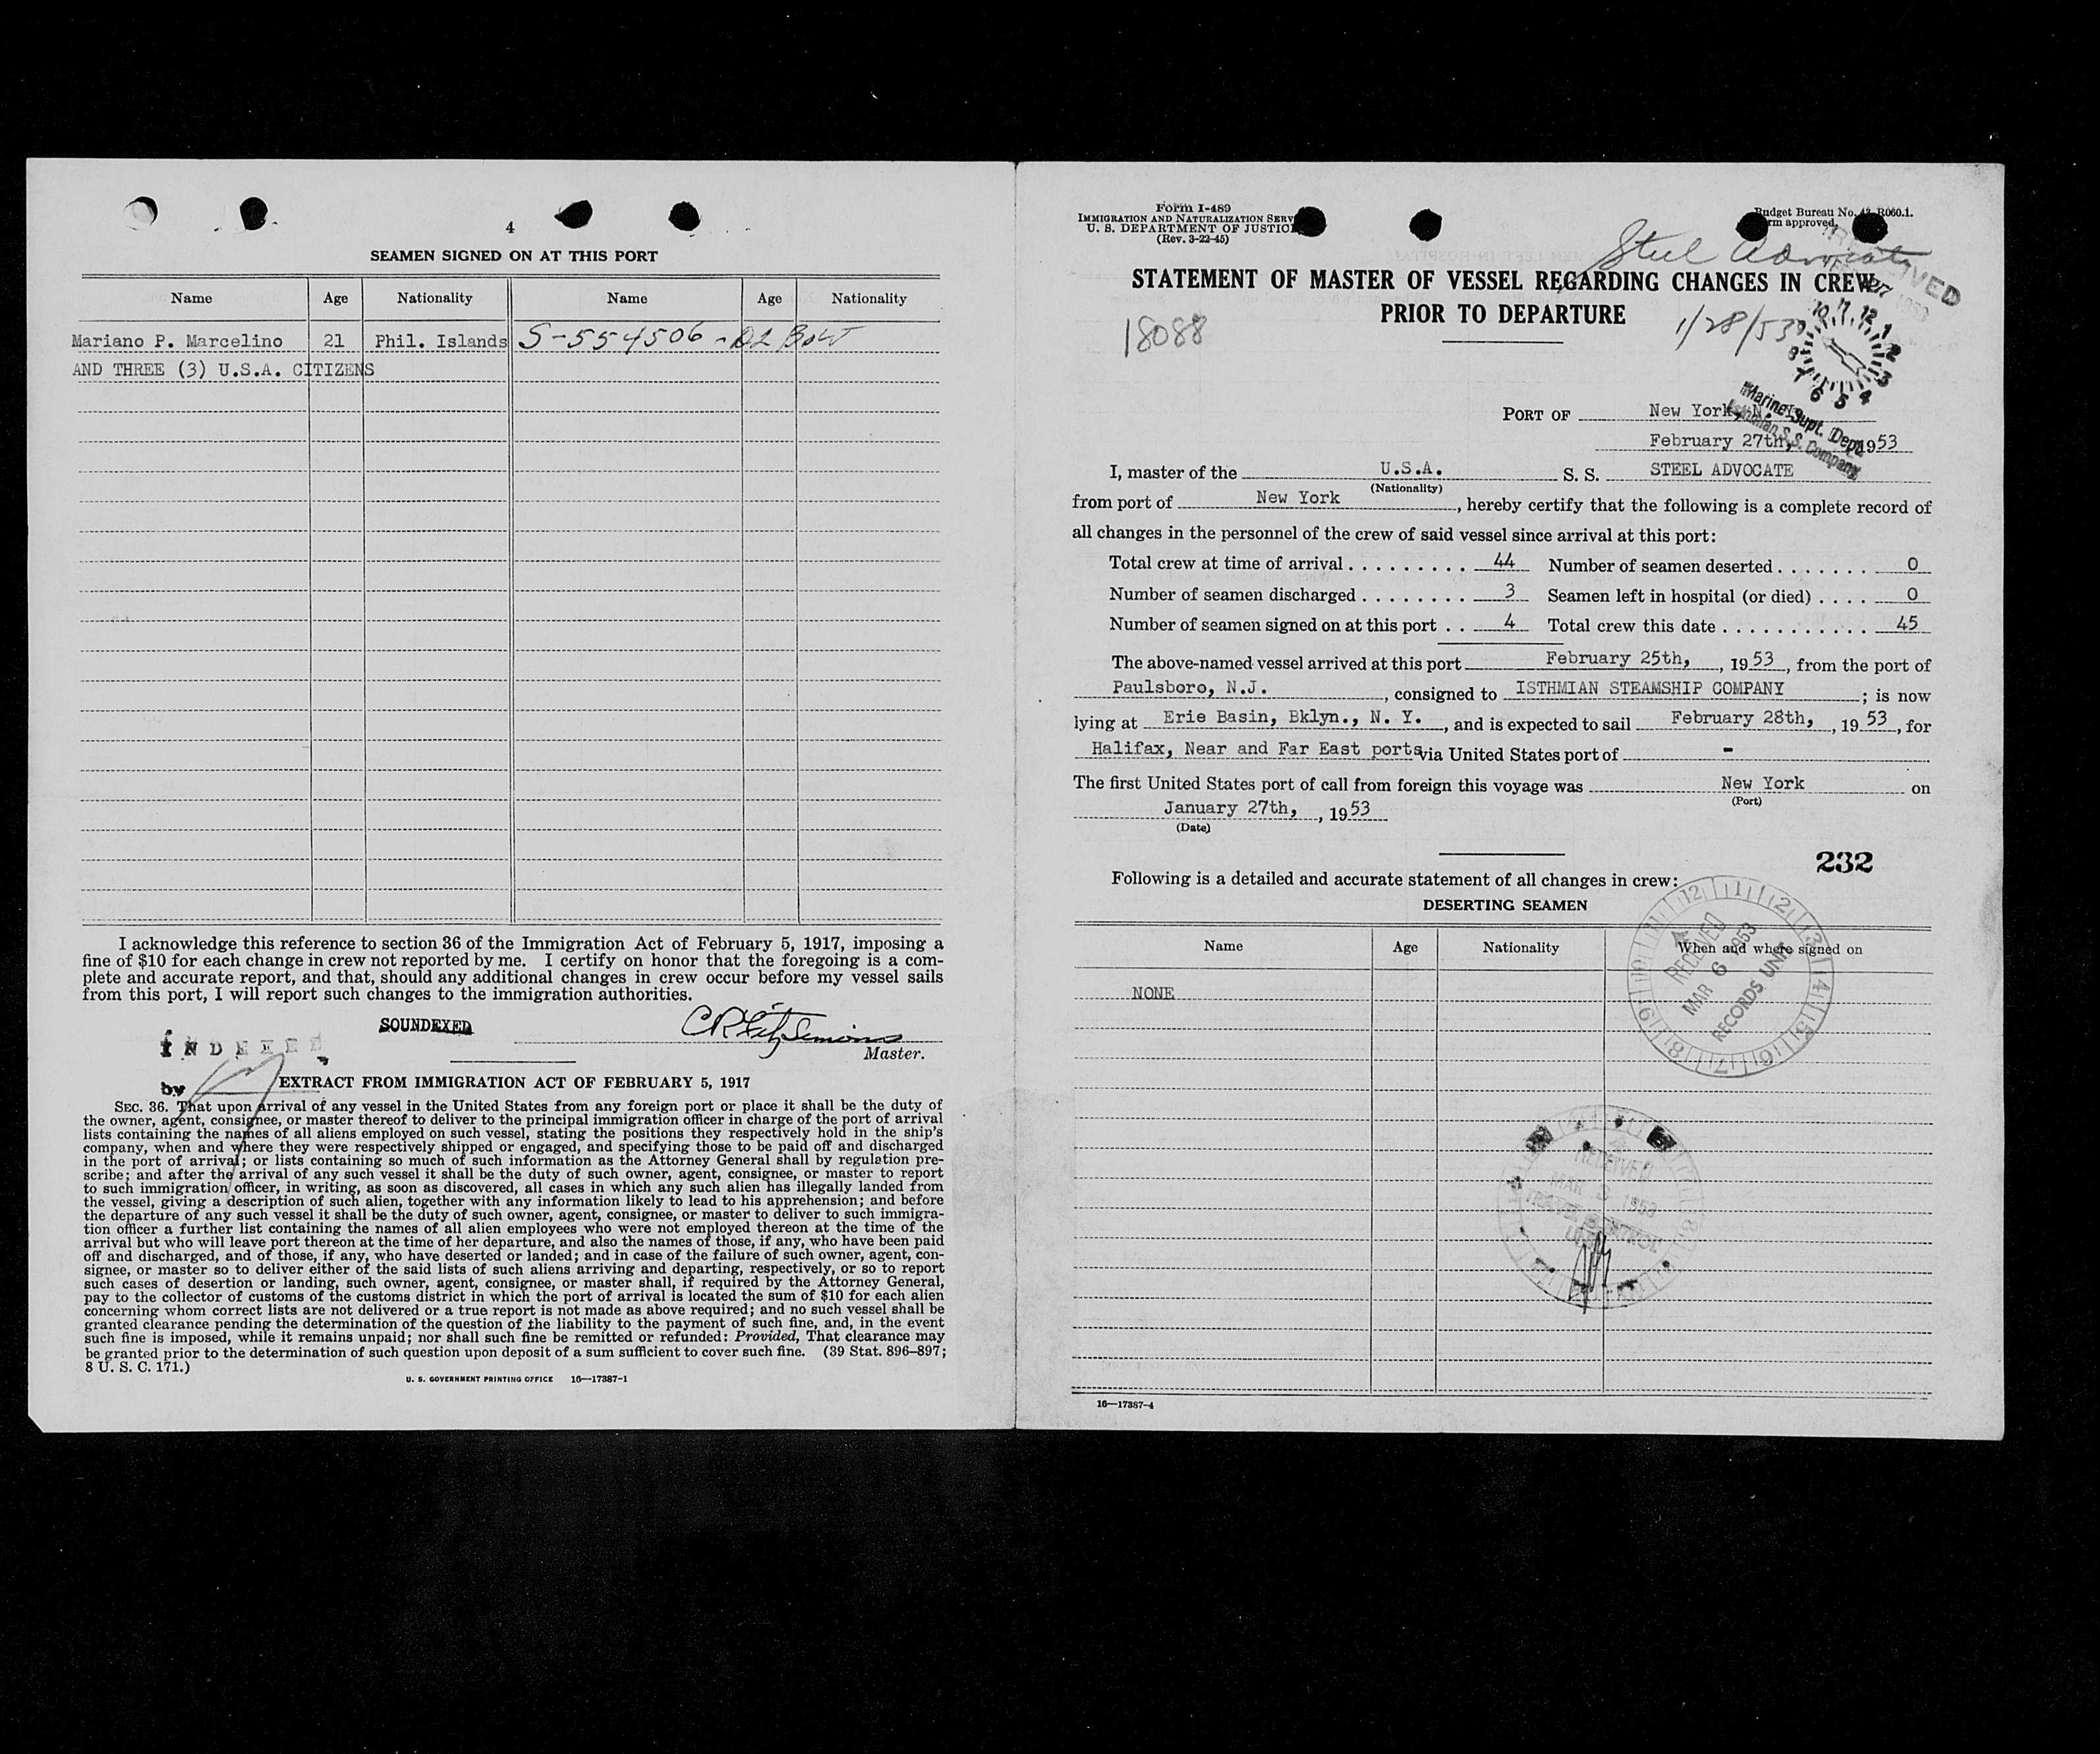 4
SEAMEN SIGNED ON AT THIS PORT
Name Age Nationality Name Age Nationality
Mariano P. Marcelino 21 Phil. Islands S-554506 -
AND THREE (3) U.S.A. CITIZENS
I acknowledge this reference to section 36 of the Immigration Act of February 5, 1917, imposing a
fine of $10 for each change in crew not reported by me. I certify on honor that the foregoing is a com-
plete and accurate report, and that, should any additional changes in crew occur before my vessel sails
from this port, I will report such changes to the immigration authorities.
SOUNDEXED
INDEXED
Master.
by
EXTRACT FROM IMMIGRATION ACT OF FEBRUARY 5, 1917
SEC. 36. That upon arrival of any vessel in the United States from any foreign port or place it shall be the duty of
the owner, agent, consignee, or master thereof to deliver to the principal immigration officer in charge of the port of arrival
lists containing the names of all aliens employed on such vessel, stating the positions they respectively hold in the ship's
company, when and where they were respectively shipped or engaged, and specifying those to be paid off and discharged
in the port of arrival; or lists containing so much of such information as the Attorney General shall by regulation pre-
scribe; and after the arrival of any such vessel it shall be the duty of such owner, agent, consignee, or master to report
to such immigration officer, in writing, as soon as discovered, all cases in which any such alien has illegally landed from
the vessel, giving a description of such alien, together with any information likely to lead to his apprehension; and before
the departure of any such vessel it shall be the duty of such owner, agent, consignee, or master to deliver to such immigra-
tion officer a further list containing the names of all alien employees who were not employed thereon at the time of the
arrival but who will leave port thereon at the time of her departure, and also the names of those, if any, who have been paid
off and discharged, and of those, if any, who have deserted or landed; and in case of the failure of such owner, agent, con-
signee, or master so to deliver either of the said lists of such aliens arriving and departing, respectively, or so to report
such cases of desertion or landing, such owner, agent, consignee, or master shall, if required by the Attorney General,
pay to the collector of customs of the customs district in which the port of arrival is located the sum of $10 for each alien
concerning whom correct lists are not delivered or a true report is not made as above required; and no such vessel shall be
granted clearance pending the determination of the question of the liability to the payment of such fine, and, in the event
such fine is imposed, while it remains unpaid; nor shall such fine be remitted or refunded: Provided, That clearance may
be granted prior to the determination of such question upon deposit of a sum sufficient to cover such fine. (39 Stat. 896–897;
8 U. S. C. 171.)
U. S. GOVERNMENT PRINTING OFFICE 16—17387-1
Form I-489
IMMIGRATION AND NATURALIZATION SERV
U. S. DEPARTMENT OF JUSTIC
(Rev. 3-22-45)
Budget Bureau No. 43-R060.1.
rm approved.
Steel Advocate
STATEMENT OF MASTER OF VESSEL REGARDING CHANGES IN CREW
PRIOR TO DEPARTURE
18088
1/28/53
Marine Supt. Dept.
Isthmian S.S. Company
PORT OF New York, N.
February 27th, 1953
I, master of the U.S.A. S. S. STEEL ADVOCATE
(Nationality)
from port of New York, hereby certify that the following is a complete record of
all changes in the personnel of the crew of said vessel since arrival at this port:
Total crew at time of arrival 44 Number of seamen deserted 0
Number of seamen discharged 3 Seamen left in hospital (or died) 0
Number of seamen signed on at this port 4 Total crew this date 45
The above-named vessel arrived at this port February 25th, , 1953, from the port of
Paulsboro, N.J. , consigned to ISTHMIAN STEAMSHIP COMPANY ; is now
lying at Erie Basin, Bklyn., N. Y. , and is expected to sail February 28th, , 1953, for
Halifax, Near and Far East ports via United States port of -
The first United States port of call from foreign this voyage was New York on
(Port)
January 27th, , 1953
(Date)
232
Following is a detailed and accurate statement of all changes in crew:
DESERTING SEAMEN
Name Age Nationality When and where signed on
NONE
RECEIVED
MAR 6 1953
RECORDS UNIT
RECEIVED
MAR 1953
16—17387-4